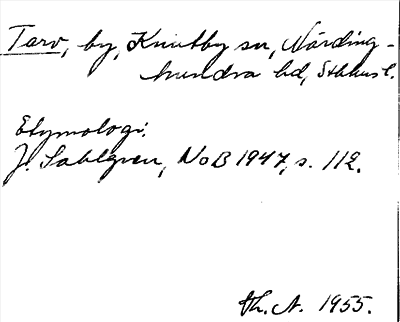 Tarv, by, Knutby sn, Närding-
hundra hd, Sthlms l.
Etymologi.
J. Sahlgren, NoB 1947, s. 112.
Th. A. 1955.